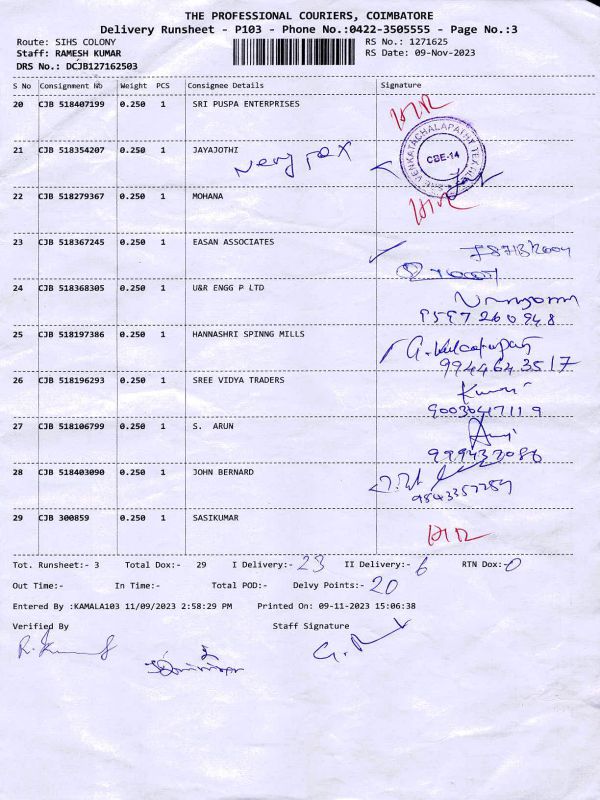 THE PROFESSIONAL COURIERS, COIMBATORE
Delivery Runsheet - P103 - Phone No.:0422-3505555 - Page No.:3
Route: SIHS COLONY RS No.: 1271625
Staff: RAMESH KUMAR RS Date: 09-Nov-2023
DRS No.: DCJB127162503
S No Consignment No Weight PCS Consignee Details Signature
20 CJB 518407199 0.250 1 SRI PUSPA ENTERPRISES
21 CJB 518354207 0.250 1 JAYAJOTHI
SRI VENKATACHALAPATHY TEXTILES
CBE-14
22 CJB 518279367 0.250 1 MOHANA
23 CJB 518367245 0.250 1 EASAN ASSOCIATES
24 CJB 518368305 0.250 1 U&R ENGG P LTD
9597260948
25 CJB 518197386 0.250 1 HANNASHRI SPINNG MILLS
9944643517
26 CJB 518196293 0.250 1 SREE VIDYA TRADERS
27 CJB 518106799 0.250 1 S. ARUN
28 CJB 518403090 0.250 1 JOHN BERNARD
29 CJB 300859 0.250 1 SASIKUMAR
Tot. Runsheet:- 3 Total Dox:- 29 I Delivery:- 23 II Delivery:- 6 RTN Dox:- 0
Out Time:- In Time:- Total POD:- Delvy Points:- 20
Entered By :KAMALA103 11/09/2023 2:58:29 PM Printed On: 09-11-2023 15:06:38
Verified By Staff Signature